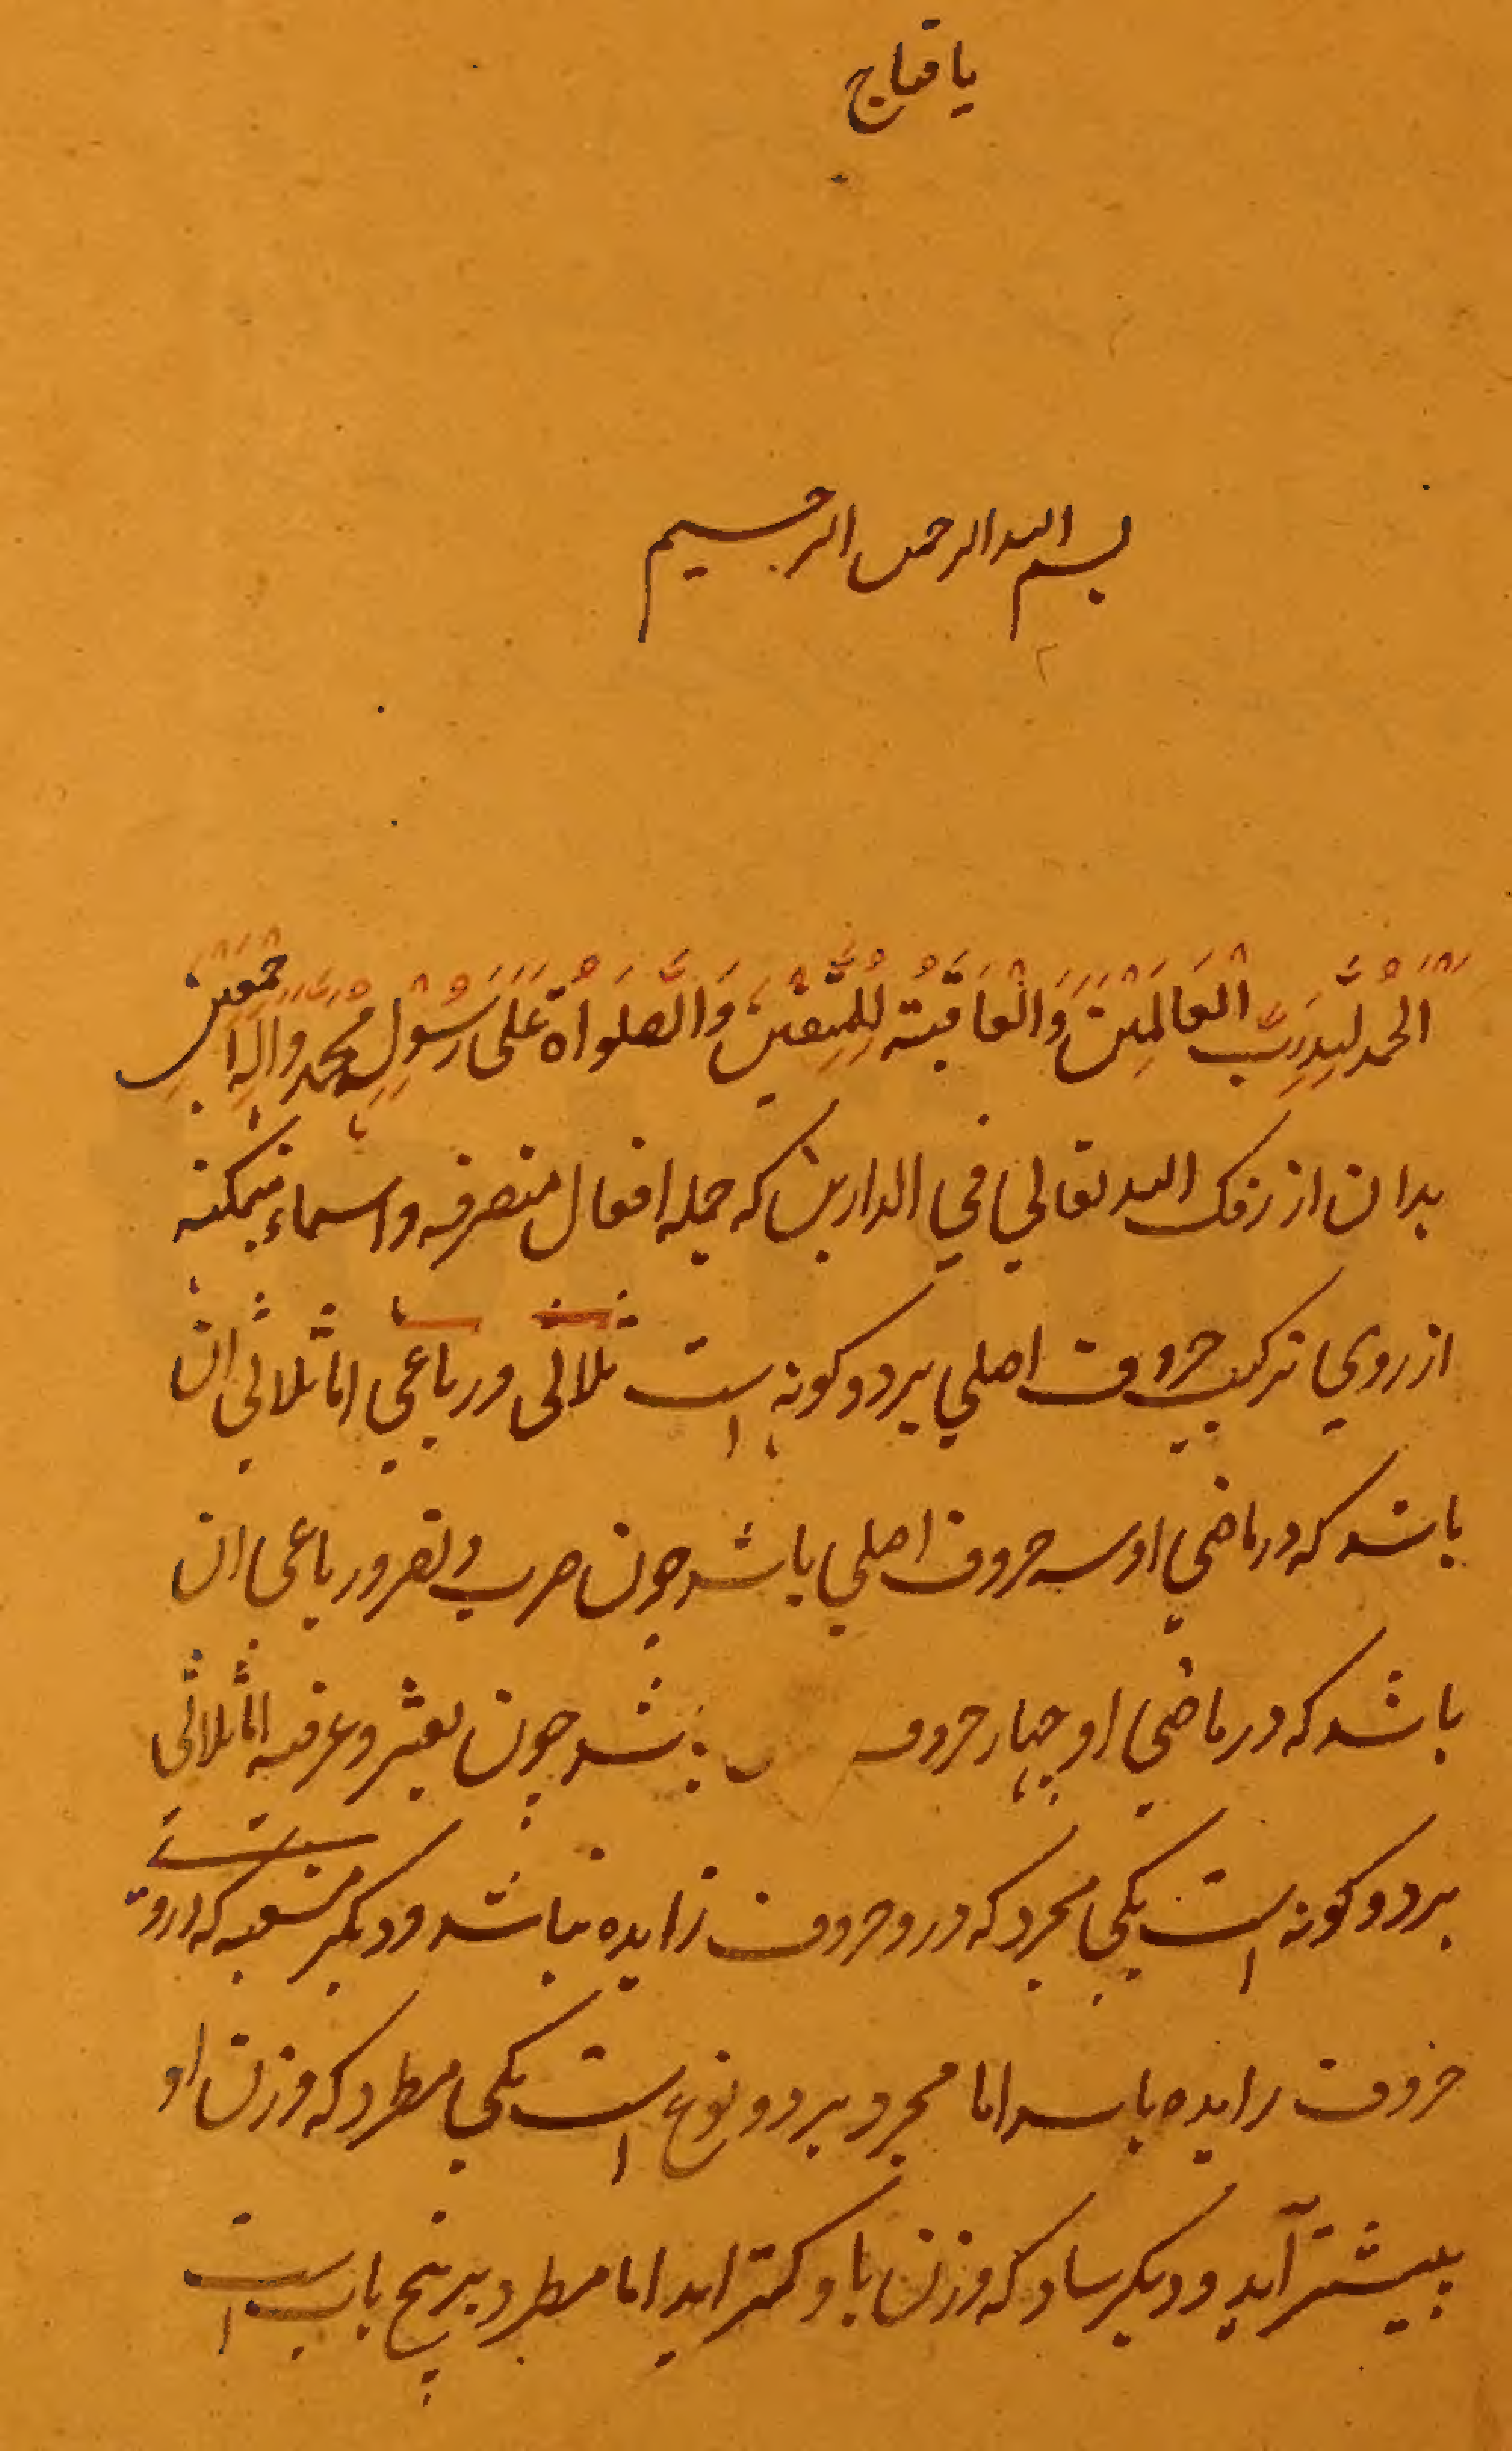 یا فتاح
بسم الله الرحمن الرحیم
الحمد لله رب العالمین والعاقبة للمتقین والصلواة علی رسوله محمد واله اجمعین
بدان ارزقک الله تعالی فی الدارین که جمله افعال متصرفه و اسماء متمکنه
از روی ترکیب حروف اصلی بر دو کونه است ثلاثی و رباعی اما ثلاثی ان
باشد که در ماضی او سه حروف اصلی باشد چون ضرب و نصر و رباعی ان
باشد که در ماضی او چهار حروف باشد چون بعثر و اما ثلاثی
بر دو کونه است یکی مجرد که درو حروف زایده نباشد و دیکر منشعبه که درو
حروف زایده باشد اما مجرد بر دو نوع است یکی مطرد که وزن او
بیشتر آید و دیکر شاذ که وزن با و کمتر اید اما مطرد بر پنج باب است